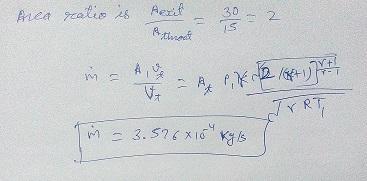 Area ratio is Aexit / Athroat = 30 / 15 = 2
ṁ = A₁ v_t / V_t = A_t P₁ γ √[2/(γ+1)]^(γ+1 / γ-1) / √γ R T₁
ṁ = 3.576 × 10⁴ Kg/s